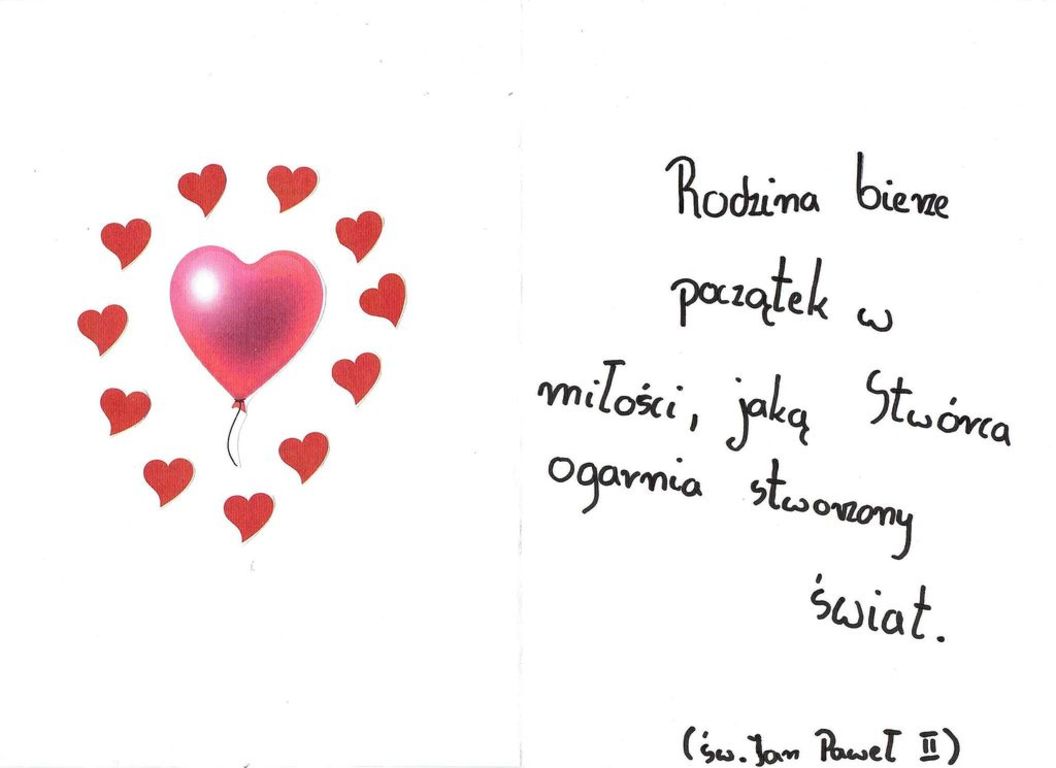 Rodzina bierze
początek w
miłości, jaką Stwórca
ogarnia stworzony
świat.
(św. Jan Paweł II)